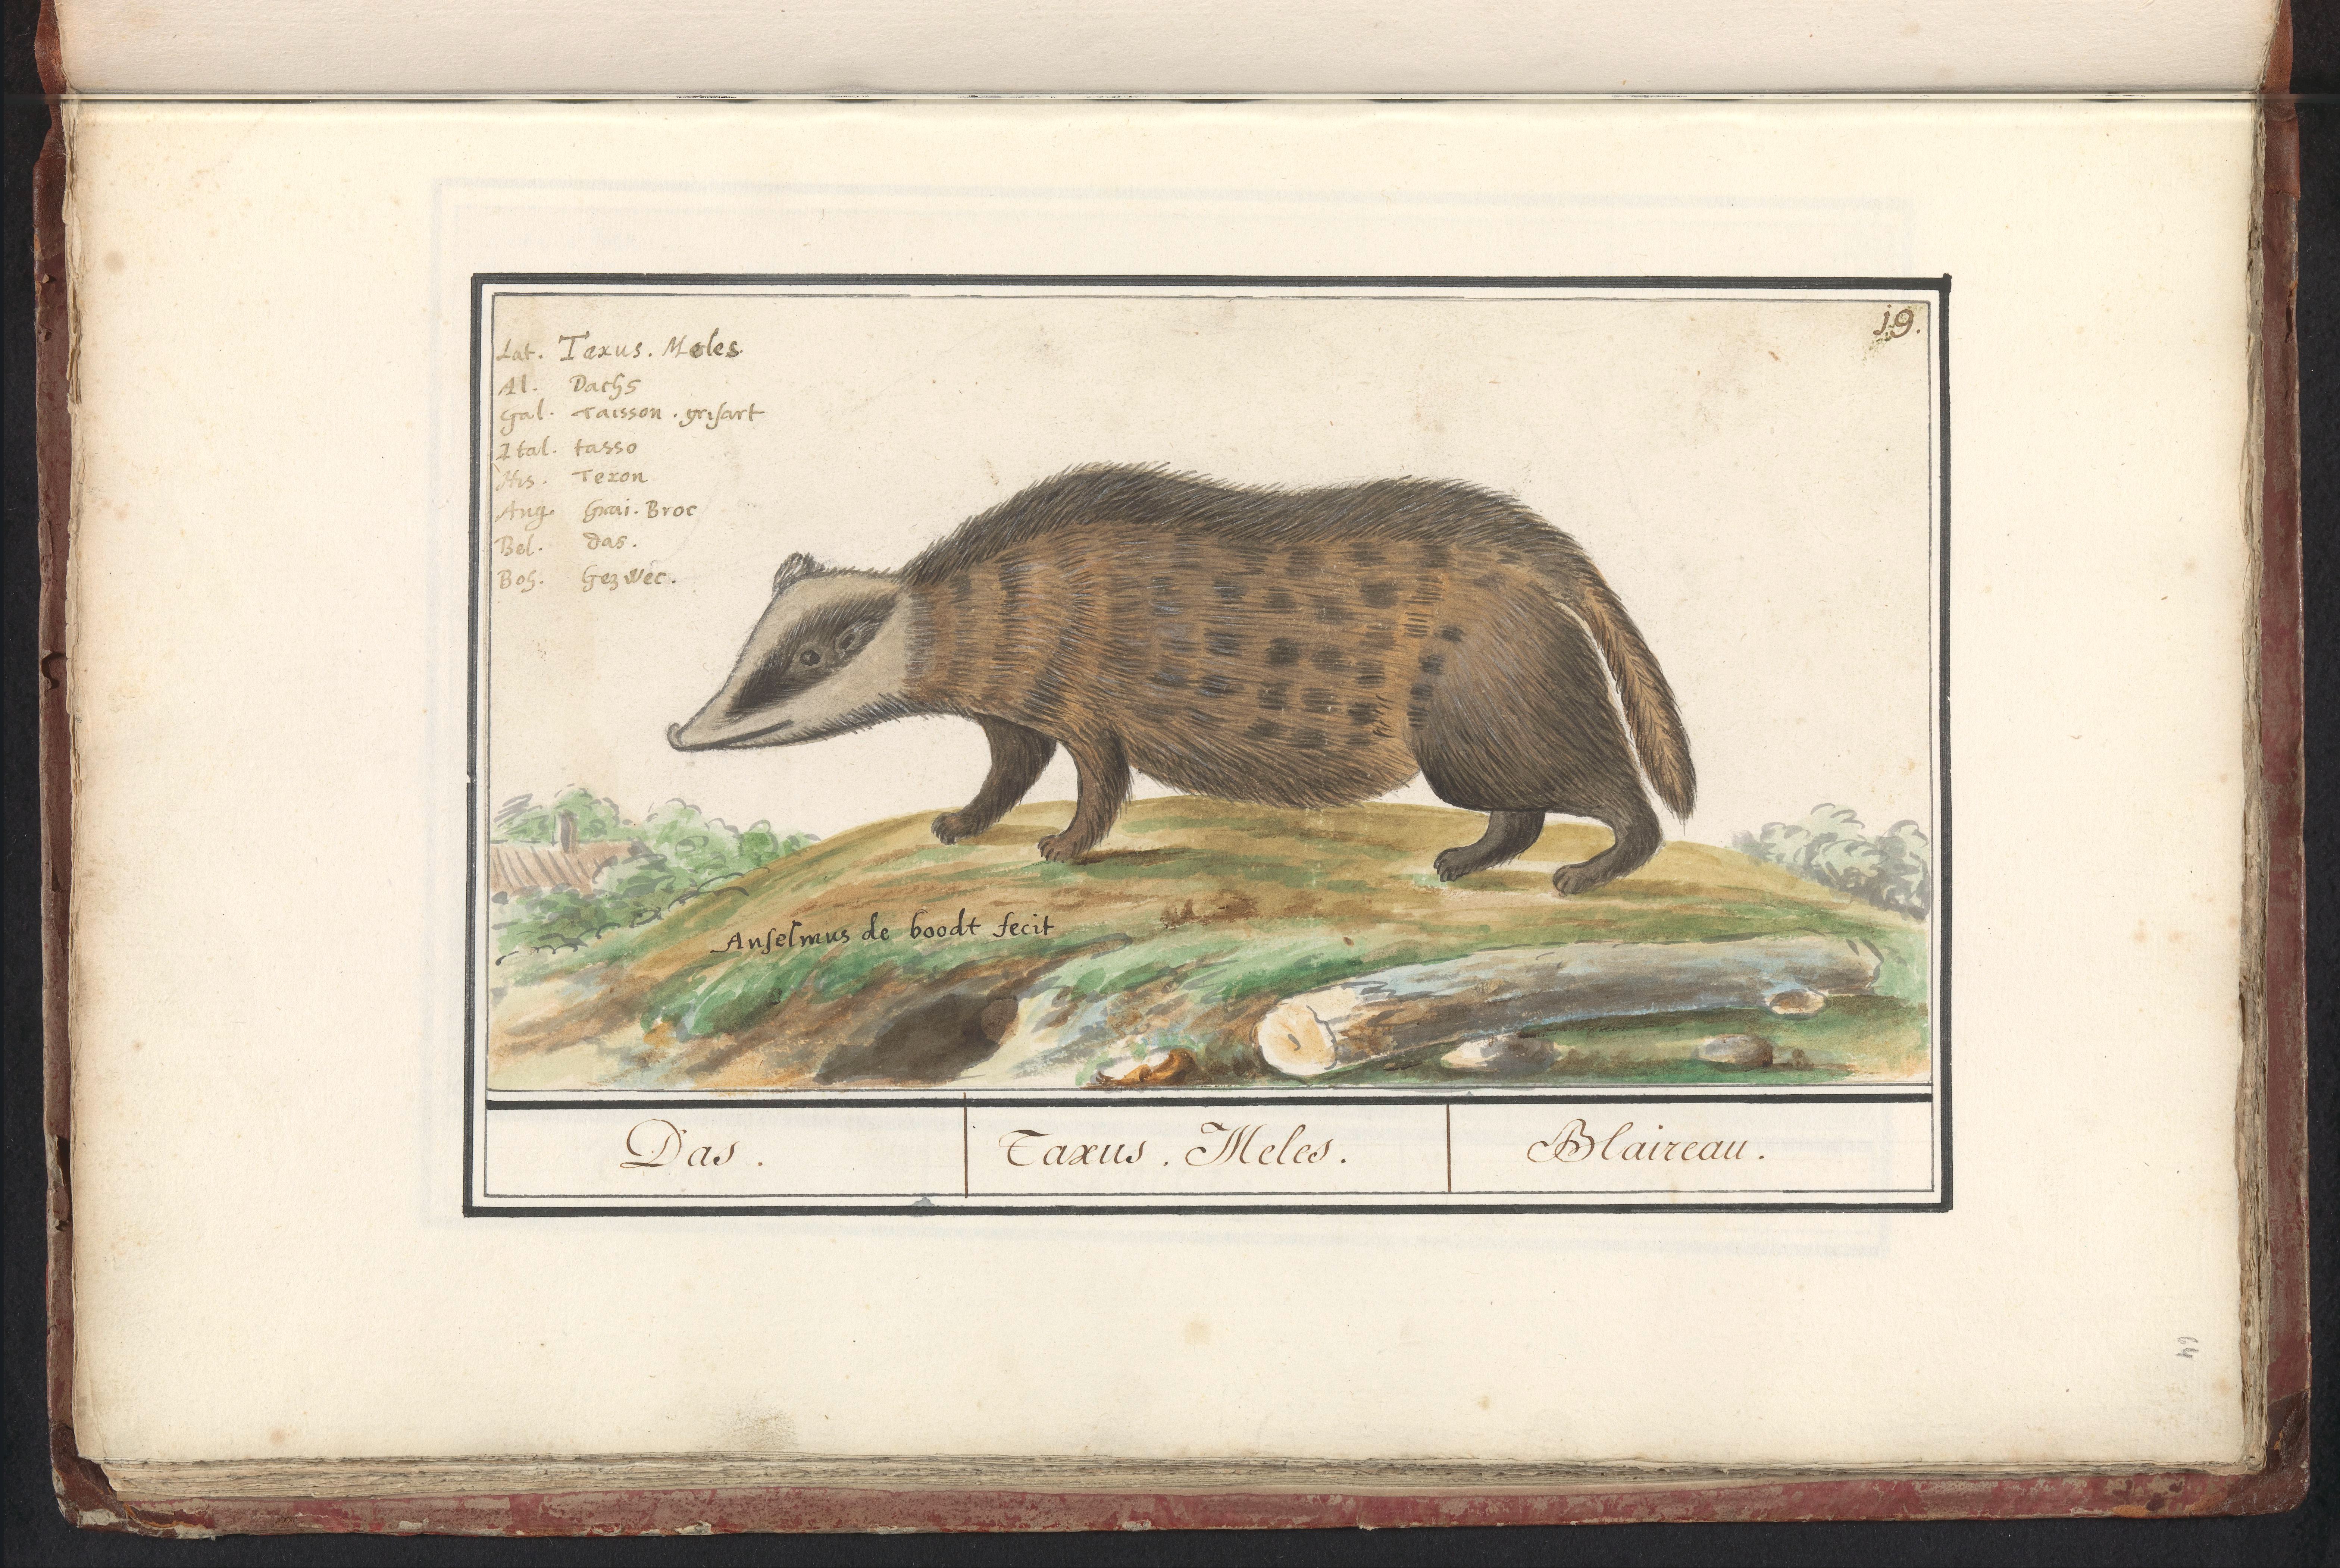 19.
Lat. Taxus. Meles.
Al. Dachs
Gal. Taisson. grisart
Ital. tasso
His. Texon
Ang. Grai. Broc
Bel. das.
Boh. Gezwéc.
Anselmus de boodt fecit
Das.
Taxus. Meles.
Blaireau.
64